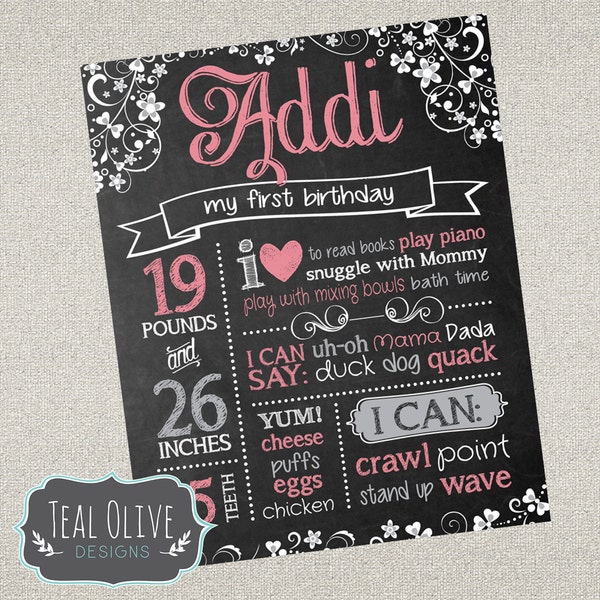 Addi
my first birthday
i
to read books play piano
snuggle with Mommy
play with mixing bowls bath time
19
POUNDS
and
26
INCHES
5
TEETH
I CAN SAY:
uh-oh mama Dada
duck dog quack
YUM!
cheese
puffs
eggs
chicken
I CAN:
crawl point
stand up wave
TEAL OLIVE
DESIGNS